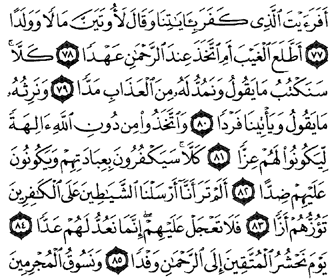 أَفَرَءَيْتَ ٱلَّذِى كَفَرَ بِـَٔايَـٰتِنَا وَقَالَ لَأُوتَيَنَّ مَالًا وَوَلَدًا
﴿٧٧﴾ أَطَّلَعَ ٱلْغَيْبَ أَمِ ٱتَّخَذَ عِندَ ٱلرَّحْمَـٰنِ عَهْدًا ﴿٧٨﴾ كَلَّا ۚ
سَنَكْتُبُ مَا يَقُولُ وَنَمُدُّ لَهُۥ مِنَ ٱلْعَذَابِ مَدًّا ﴿٧٩﴾ وَنَرِثُهُۥ
مَا يَقُولُ وَيَأْتِينَا فَرْدًا ﴿٨٠﴾ وَٱتَّخَذُوا۟ مِن دُونِ ٱللَّهِ ءَالِهَةً
لِّيَكُونُوا۟ لَهُمْ عِزًّا ﴿٨١﴾ كَلَّا ۚ سَيَكْفُرُونَ بِعِبَادَتِهِمْ وَيَكُونُونَ
عَلَيْهِمْ ضِدًّا ﴿٨٢﴾ أَلَمْ تَرَ أَنَّآ أَرْسَلْنَا ٱلشَّيَـٰطِينَ عَلَى ٱلْكَـٰفِرِينَ
تَؤُزُّهُمْ أَزًّا ﴿٨٣﴾ فَلَا تَعْجَلْ عَلَيْهِمْ ۖ إِنَّمَا نَعُدُّ لَهُمْ عَدًّا ﴿٨٤﴾
يَوْمَ نَحْشُرُ ٱلْمُتَّقِينَ إِلَى ٱلرَّحْمَـٰنِ وَفْدًا ﴿٨٥﴾ وَنَسُوقُ ٱلْمُجْرِمِينَ